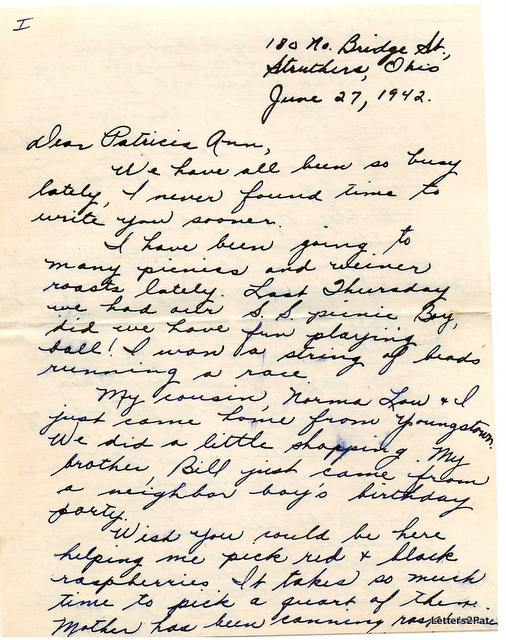 I
180 No. Bridge St.,
Struthers, Ohio
June 27, 1942.
Dear Patricia Ann,
We have all been so busy
lately, I never found time to
write you sooner.
I have been going to
many picnics and weiner
roasts lately. Last Thursday
we had our S.S picnic Boy,
did we have fun playing
ball! I won a string of beads
running a race
My cousin, Norma Lou & I
just came home from Youngstown.
We did a little shopping. My
brother, Bill just came from
a neighbor boy's birthday
party.
Wish you could be here
helping me pick red & black
raspberries It takes so much
time to pick a quart of them.
Mother has been canning
Letters2Pat